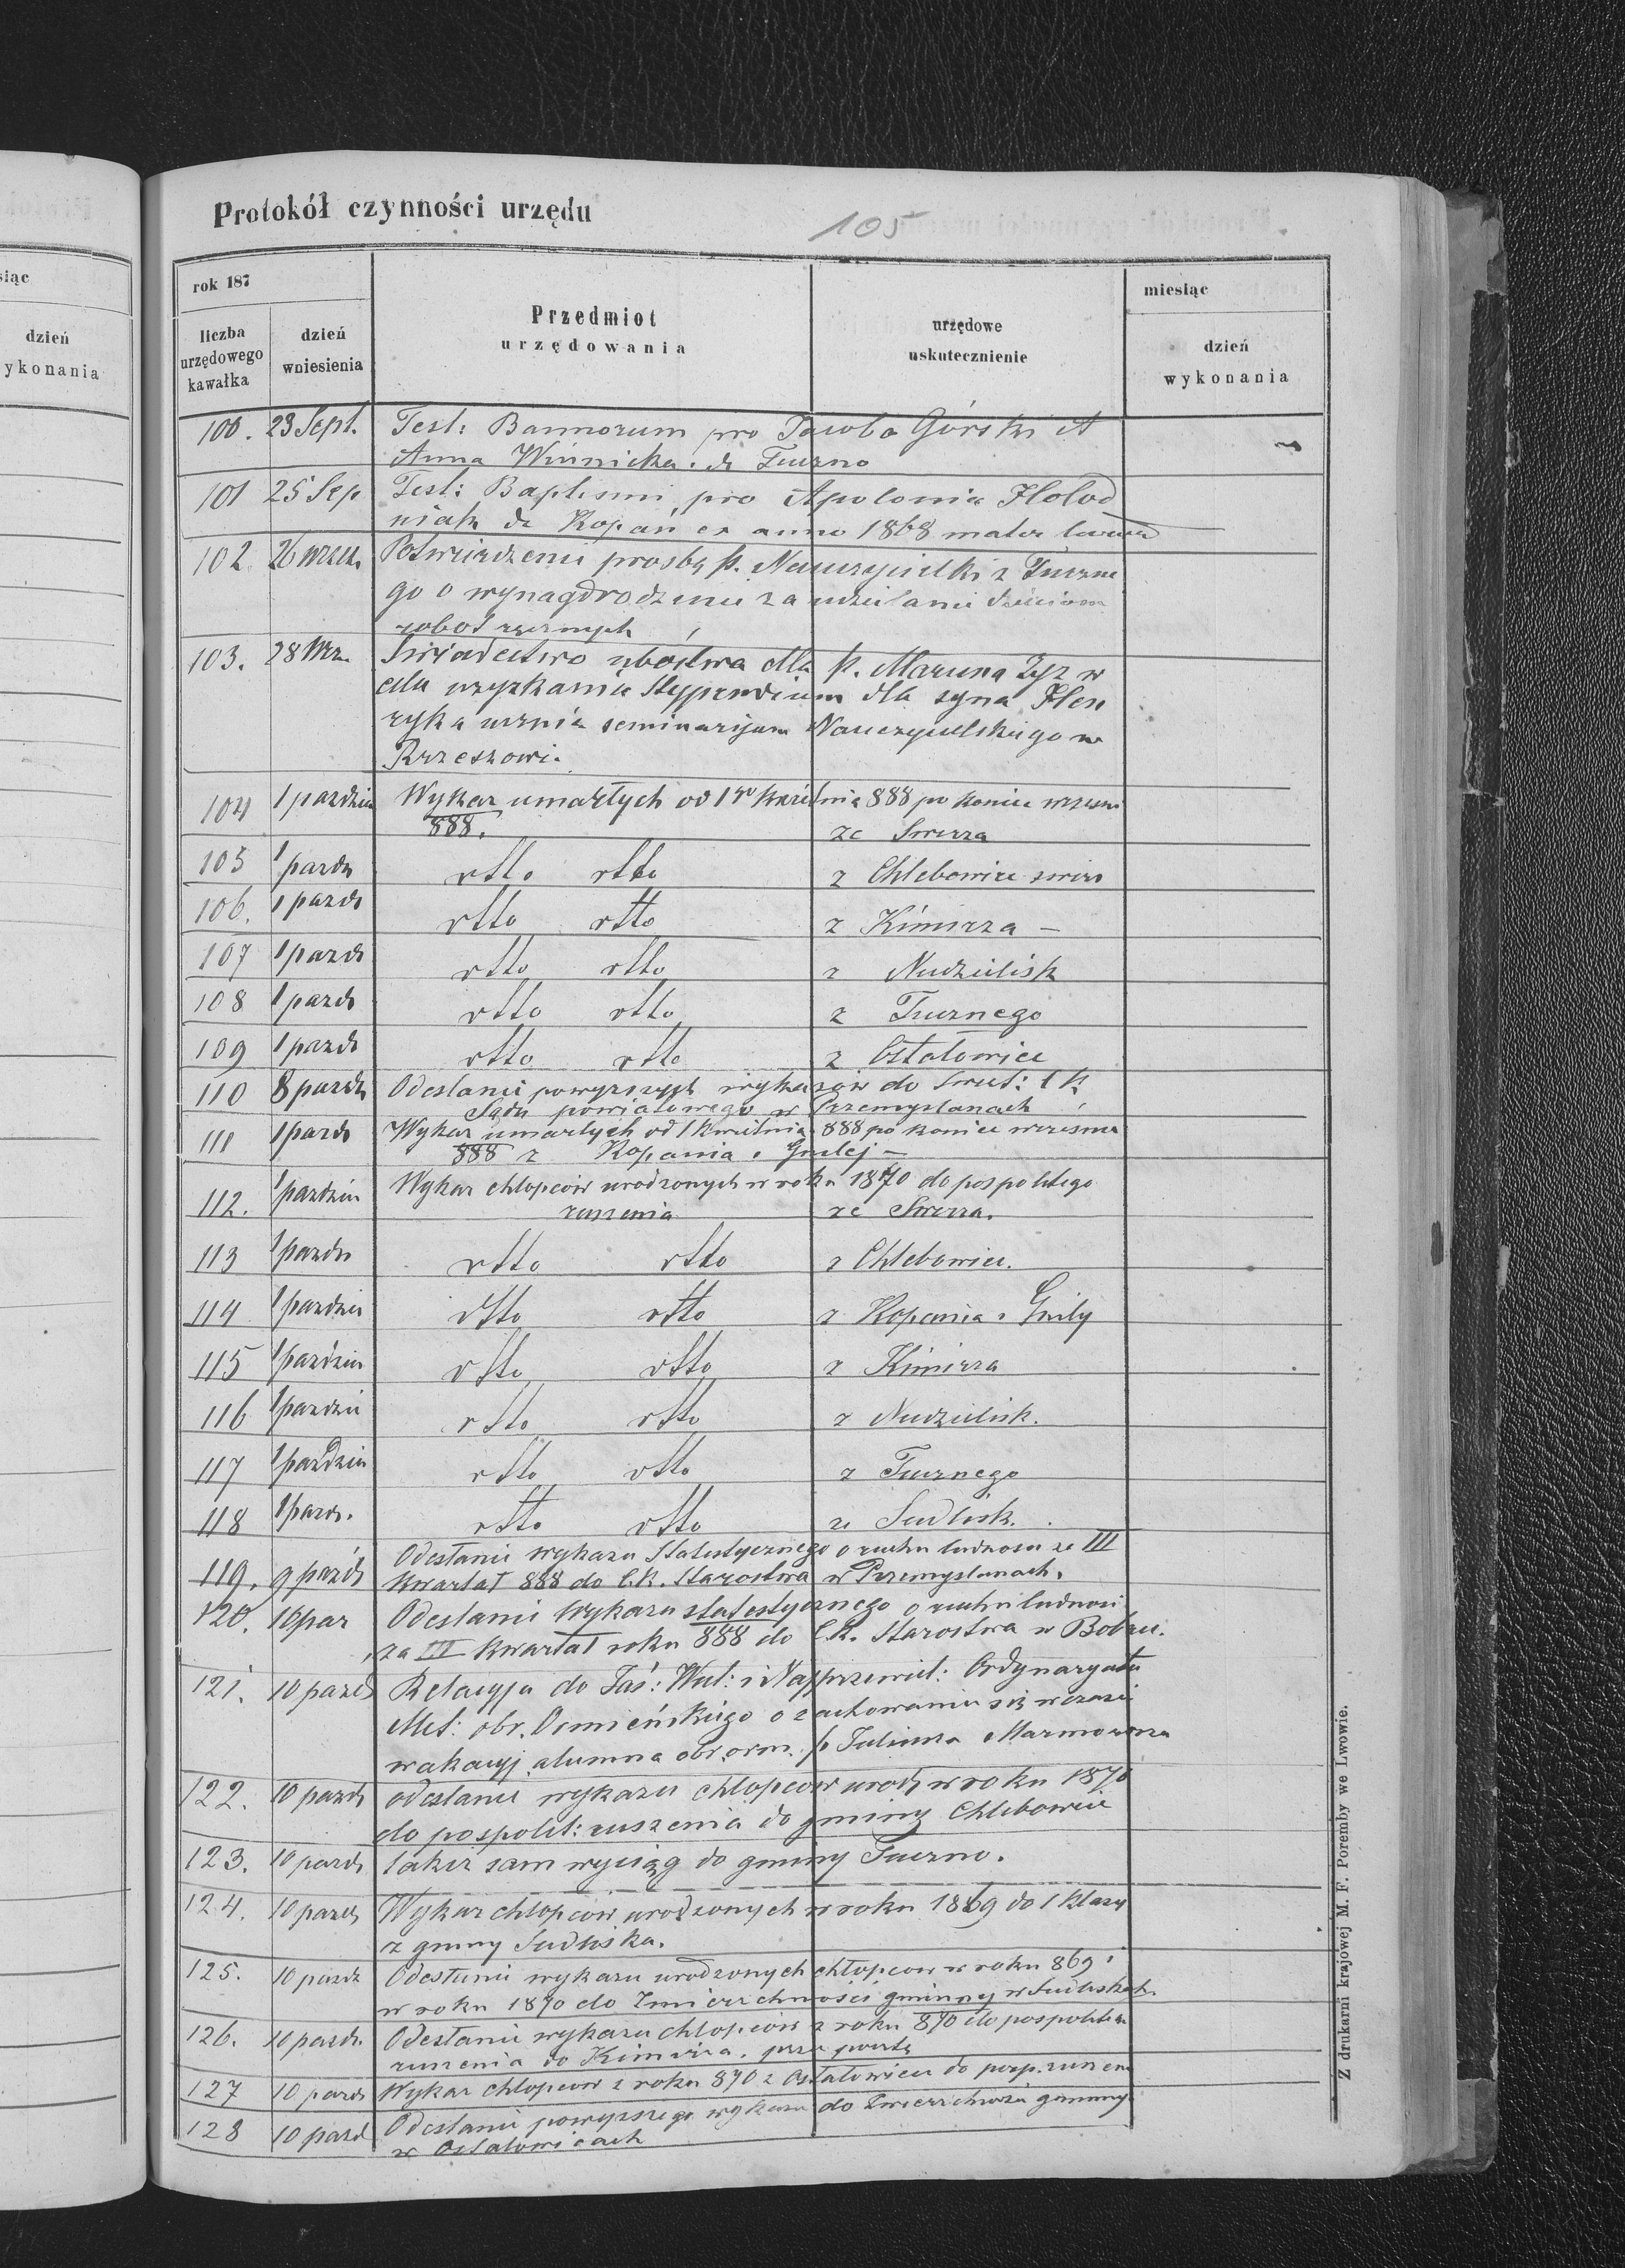 Protokół czynności urzędu
105
siąc
dzień
ykonania
rok 187
liczba urzędowego kawałka
dzień wniesienia
Przedmiot urzędowania
urzędowe uskutecznienie
miesiąc
dzień wykonania
100. 23 Sept. Test: Bannorum pro Jacobo Górski et
Anna Winnicka de Tuczno
101 25 Sep Test: Baptismi pro Apolonia Hołod
niak de Kopań ex anno 1868 mater
102. 26 wrzes. Potwierdzenie prosby p. Nauczycielki z Tuczne
go o wynagdrodzenie za udzielanie dzieciom
robot ręcznych
103. 28 Wrz. Świadectwo ubóstwa dla p. Maryna Zyz w
celu uzyskania stypendium dla syna Hen
ryka ucznia seminarijum Nauczycielskiego w
Rzeszowie.
104 1 pazdzier Wykaz umarłych od 1go kwietnia 888 po koniec wrzesni
888. ze Swirza
105 1 pazdz dtto dtto z Chlebowice swirs
106. 1 pazdz dtto dtto z Kimirza –
107 1 pazdz dtto dtto z Niedzielisk
108 1 pazdz dtto dtto z Tucznego
109 1 pazdz dtto dtto z Ostałowice
110 8 pazdz Odesłanie powyższych wykazów do Swiet: C K
Sądu powiatowego w Przemyslanach
111 1 pazdz Wykaz umarłych od 1 kwietnia 888 po koniec wrzesnia
888 z Kopania i Gniłej –
112. 1 pazdzier Wykaz chłopców urodzonych w roku 1870 do pospolitego
ruszenia ze Swirza.
113 1 pazdz dtto dtto z Chlebowice.
114 1 pazdzier dtto dtto z Kopania i Gniły
115 1 pazdzier dtto dtto z Kimirza
116 1 pazdzie dtto dtto z Niedzielisk.
117 1 pazdzier dtto dtto z Tucznego
118 1 pazdz. dtto dtto ze Siedlisk.
119. 9 pażdz Odesłanie wykazu statestycznego o ruchu ludnosci ze III
kwartał 888 do C.K. Starostwa w Przemyslanach.
120. 10 paz Odesłanie wykazu statestycznego o ruchu ludnosci
za III kwartał roku 888 do C.K. Starostwa w Bobrce.
121. 10 pazdz Relacyja do Jaś: Wiel: i Najprzewiel: Ordynaryatu
Met: obr. Ormieńskiego o zachowaniu się w czasie
wakacyj alumna obr. orm. p Juliusza Marmorosza
122. 10 pazdz odesłanie wykazu chłopców urodz w roku 1870
do pospolit: ruszenia do gminy Chlebowice
123. 10 pazdz takiż sam wyciąg do gminy Tuczno.
124. 10 pazdz Wykaz chłopców urodzonych w roku 1869 do 1 klasy
z gminy Siedliska.
125. 10 pazdz Odesłanie wykazu urodzonych chłopców w roku 869 i
w roku 1870 do Zwierzchności gminnej w Siedliskach.
126. 10 pazdz. Odesłanie wykazu chłopców z roku 870 do pospolitego
ruszenia do Kimirza. przez pocztę
127 10 pazdz Wykaz chłopców z roku 870 z Ostałowice do posp. ruszen
128 10 pazd Odesłanie powyższego wykazu do Zwierzchności gminny
w Ostałowicach
Z drukarni krajowej M. F. Poremby we Lwowie.